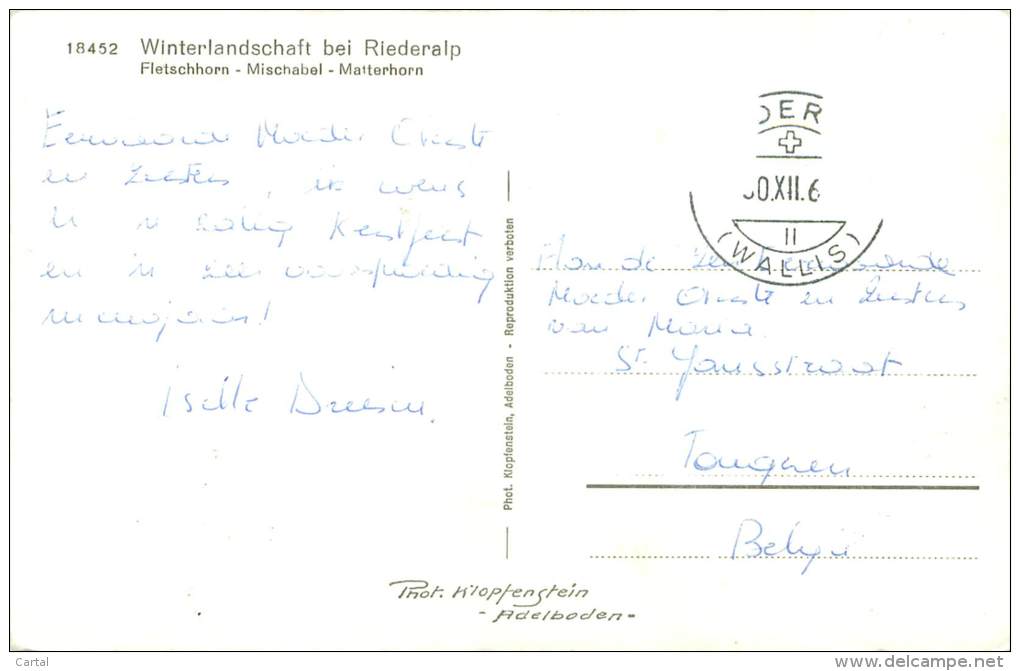 18452 Winterlandschaft bei Riederalp
Fletschhorn - Mischabel - Matterhorn
Eerwaarde Moeder Overste
en Zusters, ik wens
U 'n zalig Kerstfeest
en 'n zeer voorspoedig
nieuwjaar!
Driesen.
Phot. Klopfenstein, Adelboden - Reproduktion verboten
DER
0.XII.6
II
(WALLIS)
Aan de Zeer Eerwaarde
Moeder Overste en Zusters
van Maria
St. Jansstraat
Tongeren
België
Phot. Klopfenstein
- Adelboden -
Cartal
delcampe.net